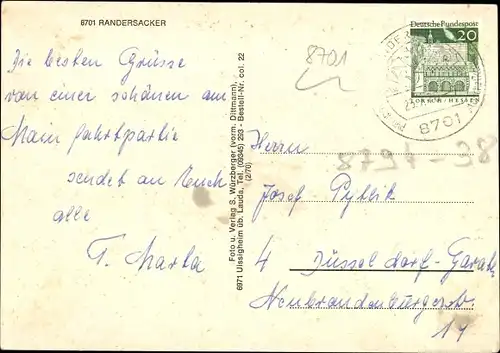 6701 RANDERSACKER
Die besten Grüsse
von einer schönen am
Main fahrtpartie
sendet an Euch
alle
T. Marta
Foto u. Verlag S. Würzberger (vorm. Dittmann),
6971 Uissigheim üb. Lauda, Tel. (09345) 293 - Bestell-Nr. col. 22
(2/70)
8701
Deutsche Bundespost
20
LORSCH / HESSEN
8701
Herrn
Josef Pyllik
4 Düsseldorf-Garath
Neubrandenburgerstr.
14